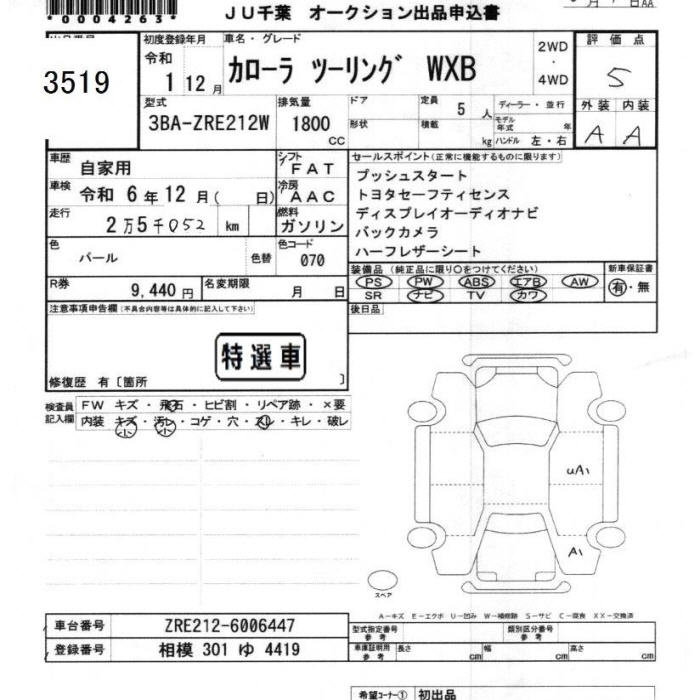 *0004263*
JU千葉 オークション出品申込書
3519
初度登録年月
令和
1 12月
車名・グレード
カローラ ツーリング WXB
2WD
・
4WD
評価点
S
外装 内装
A A
型式
3BA-ZRE212W
排気量
1800
CC
ドア
形状
定員 5 人
積載 kg
ディーラー・並行
モデル年式 年
ハンドル 左・右
車歴 自家用
シフト FAT
車検 令和 6年 12月( 日)
冷房 AAC
走行 2万5千052 km
燃料 ガソリン
色 パール
色替
色コード 070
R券 9,440円
名変期限 月 日
セールスポイント(正常に機能するものに限ります)
プッシュスタート
トヨタセーフティセンス
ディスプレイオーディオナビ
バックカメラ
ハーフレザーシート
装備品 (純正品に限り○をつけてください)
PS PW ABS エアB AW
SR ナビ TV カワ
新車保証書
有・無
後日品
注意事項申告欄(不具合内容等は具体的に記入して下さい)
特選車
修復歴 有〔箇所 〕
検査員記入欄
FW キズ・飛石・ヒビ割・リペア跡・×要
内装 キズ・汚レ・コゲ・穴・スレ・キレ・破レ
小 小
uA1
A1
スペア
A-キズ E-エクボ U-凹み W-補修跡 S-サビ C-腐食 XX-交換済
車台番号 ZRE212-6006447
登録番号 相模 301 ゆ 4419
型式指定番号 参考
類別区分番号 参考
車庫証明用 参考
長さ cm 幅 cm 高さ cm
希望コーナー① 初出品